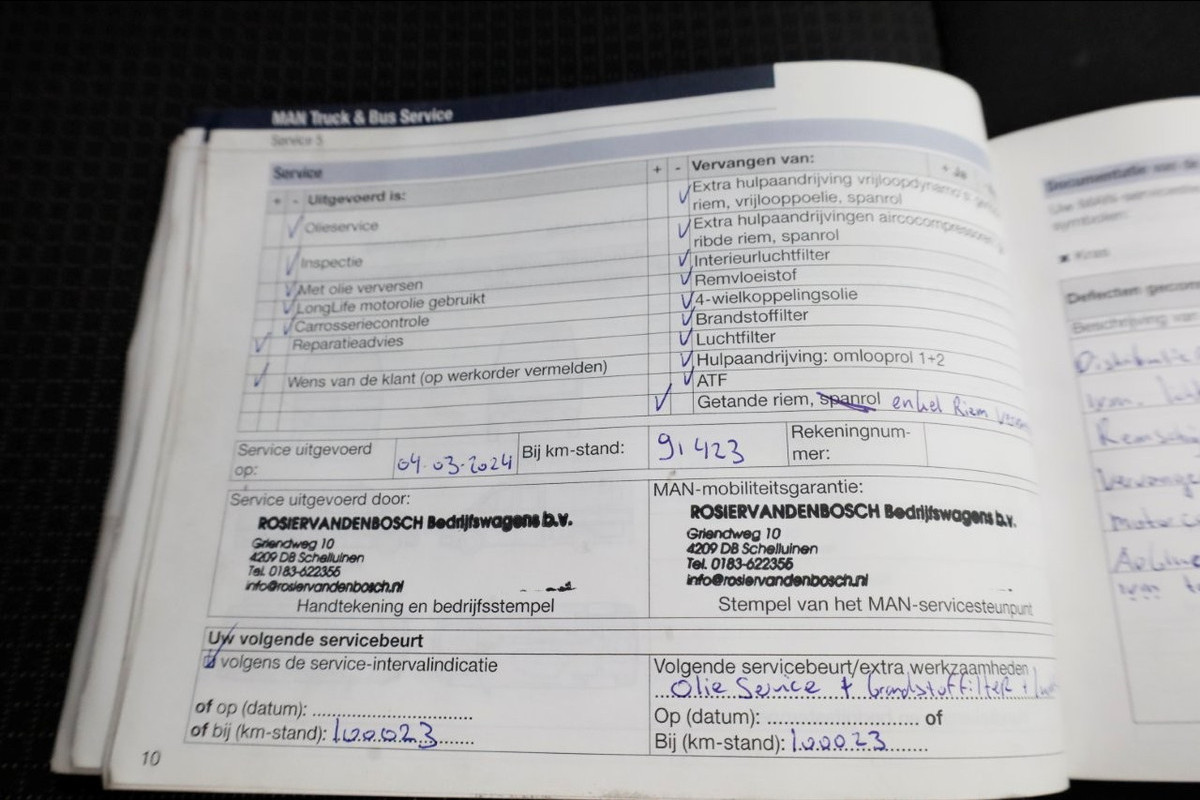 MAN Truck & Bus Service
Service 5
Service
+ - Uitgevoerd is:
Olieservice
Inspectie
Met olie verversen
LongLife motorolie gebruikt
Carrosseriecontrole
Reparatieadvies
Wens van de klant (op werkorder vermelden)
+ - Vervangen van:
+ Ja
Extra hulpaandrijving vrijloopdynamo's
riem, vrijlooppoelie, spanrol
Extra hulpaandrijvingen aircocompressoren
ribde riem, spanrol
Interieurluchtfilter
Remvloeistof
4-wielkoppelingsolie
Brandstoffilter
Luchtfilter
Hulpaandrijving: omlooprol 1+2
ATF
Getande riem, spanrol enkel Riem
Service uitgevoerd
op:
04-03-2024
Bij km-stand:
91423
Rekeningnum-
mer:
Service uitgevoerd door:
ROSIERVANDENBOSCH Bedrijfswagens b.v.
Griendweg 10
4209 DB Schelluinen
Tel. 0183-622356
info@rosiervandenbosch.nl
Handtekening en bedrijfsstempel
MAN-mobiliteitsgarantie:
ROSIERVANDENBOSCH Bedrijfswagens b.v.
Griendweg 10
4209 DB Schelluinen
Tel. 0183-622356
info@rosiervandenbosch.nl
Stempel van het MAN-servicesteunpunt
Uw volgende servicebeurt
volgens de service-intervalindicatie
of op (datum): ........................
of bij (km-stand): 100023
Volgende servicebeurt/extra werkzaamheden
Olie Service + brandstoffilter +
Op (datum): ........................ of
Bij (km-stand): 100023
10
Documentatie van de
Uw MAN-service
symbolen:
Kruis
Defecten geconst
Beschrijving van